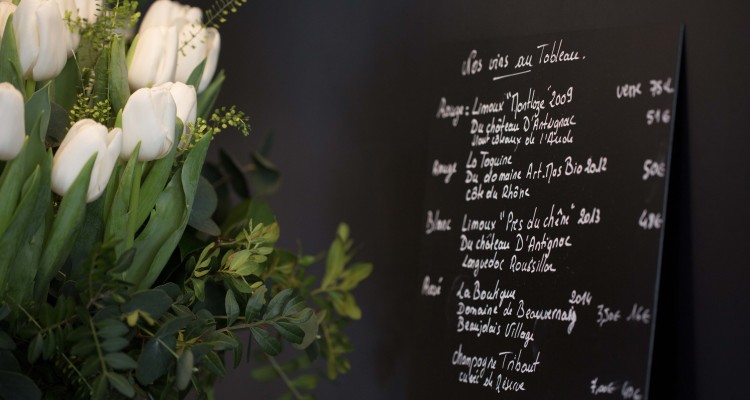 Nos vins au Tableau.
Rouge: Limoux "Montloze" 2009 verre 7,5€
Du château D'Antugnac 51€
Haut coteaux de l'Aude
Rouge La Toquine
Du domaine Art.Mas Bio 2012 50€
Côte du Rhône
Blanc Limoux "Pres du chêne" 2013 48€
Du château D'Antignac
Languedoc Roussillon
Rosé La Boutique 2014
Domaine de Beauvernay 3,50€ 16€
Beaujolais Village
Champagne Tribaut
cuvée de Réserve 7,00€ 40€